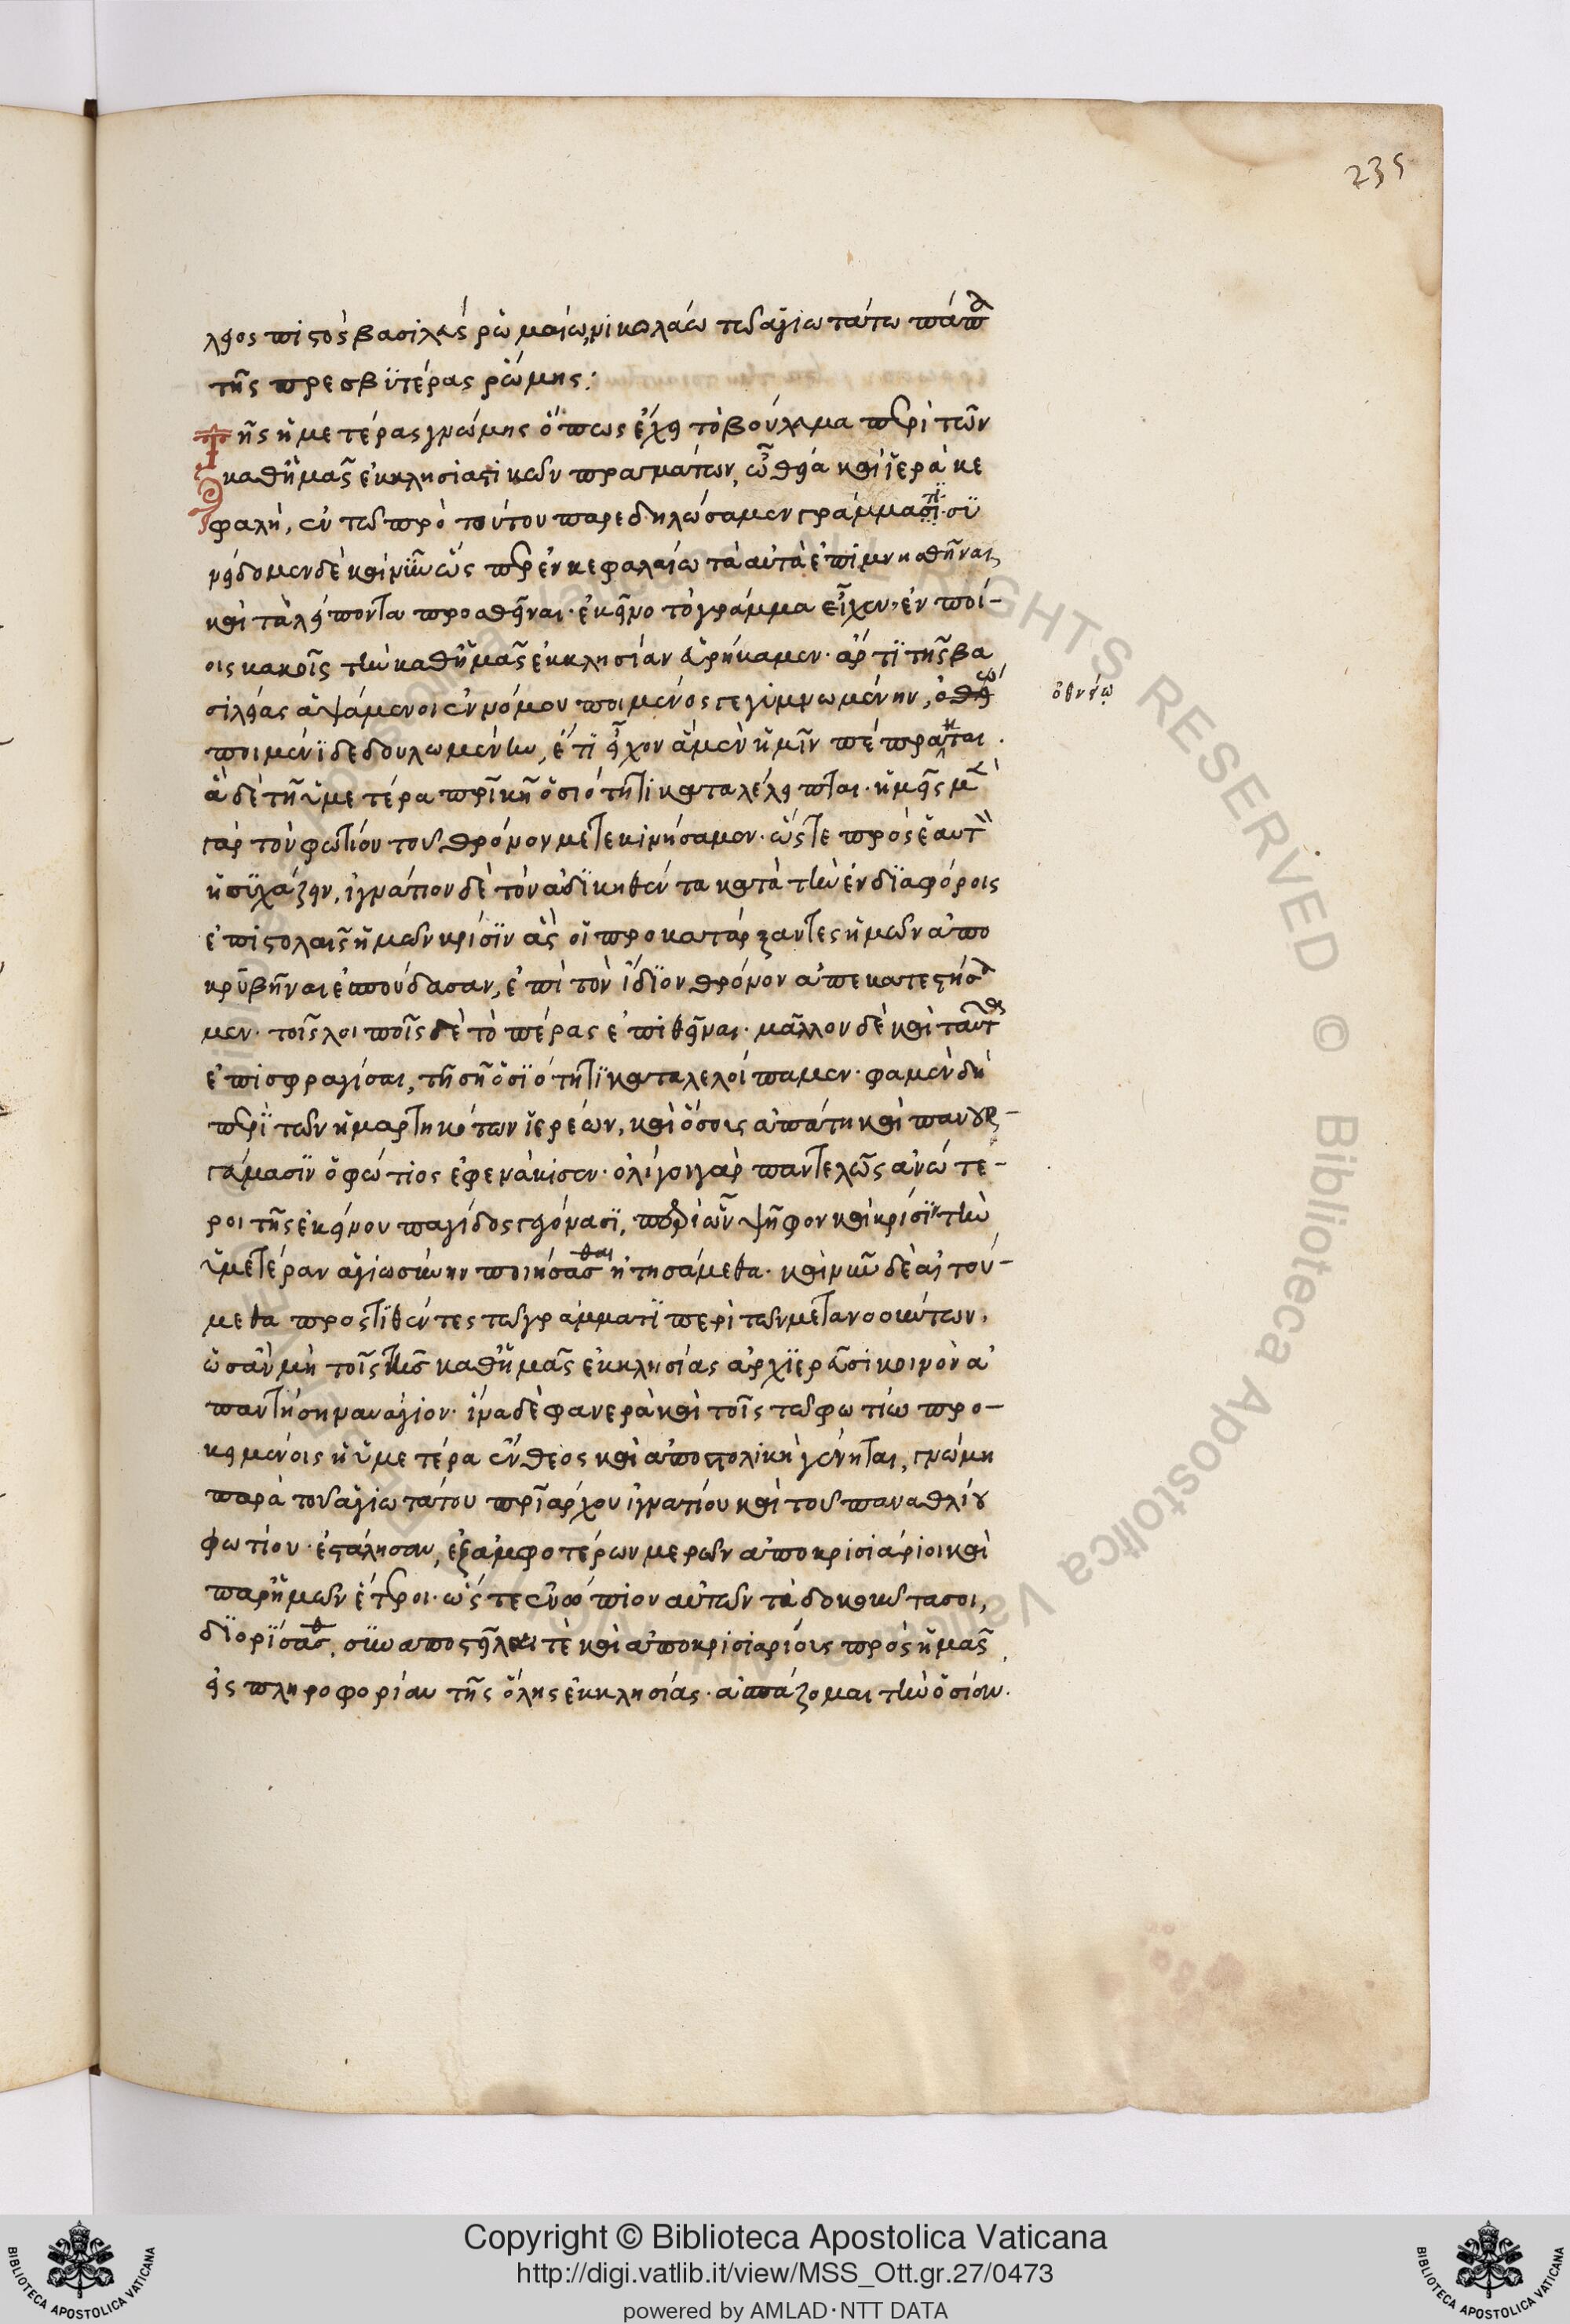 235
λειος πιστὸς βασιλεὺς ῥωμαίων, νικολάω τῶ ἁγιωτάτω πάπα
τῆς πρεσβυτέρας ῥώμης:
Τῆς ἡμετέρας γνώμης ὅπως ἔχει τὸ βούλημα περὶ τῶν
καθ' ἡμᾶς ἐκκλησιαστικῶν πραγμάτων, ὦ θεία καὶ ἱερὰ κε
φαλή, ἐν τῶ πρὸ τούτου παρεδηλώσαμεν γράμματι. σπ
εύδομεν δὲ καὶ νῦν ὡς περ ἐν κεφαλαίω τὰ αὐτὰ ἐπιμνησθῆναι,
καὶ τὰ λείποντα προσθεῖναι. ἐκεῖνο τὸ γράμμα εἶχεν. ἐν ποί-
οις κακοῖς τὴν καθ' ἡμᾶς ἐκκλησίαν εὑρήκαμεν. ἄρτι τῆς βα
σιλείας ἁψάμενοι ἐννόμου ποιμένος γεγυμνωμένην, ὀθνείω
ὀθνείω
ποιμένι δεδουλωμένην, ἔτι εἶχον ἃ μὲν ἡμῖν πέπρακται.
ἃ δὲ τῆ ὑμετέρα πρικῆ ὁσιότητι καταλέλειπται. ἡμεῖς μὲν
γὰρ τὸν φώτιον τοῦ θρόνου μετεκινήσαμεν. ὥστε πρὸς ἑαυτὸν
ἡσυχάζειν, ἰγνάτιον δὲ τὸν ἀδικηθέντα κατὰ τὴν ἐν διαφόροις
ἐπιστολαῖς ἡμῶν κρίσιν ἃς οἱ προκατάρξαντες ἡμῶν ἀπο
κρυβῆναι ἐσπούδασαν, ἐπὶ τὸν ἴδιον θρόνον ἀπεκατεστήσα
μεν. τοῖς λοιποῖς δὲ τὸ πέρας ἐπιθεῖναι. μᾶλλον δὲ καὶ ταῦτα
ἐπισφραγίσαι, τῆ σῆ ὁσιότητι καταλελοίπαμεν. φαμὲν δὴ
περὶ τῶν ἡμαρτηκότων ἱερέων, καὶ ὅσοις ἀπάτη καὶ πανουρ-
γάμασιν ὁ φώτιος ἐφενάκισεν. ὀλίγοι γὰρ παντελῶς ἀνώτε-
ροι τῆς ἐκείνου παγίδος γεγόνασι, περὶ ὧν ψῆφον καὶ κρίσιν τὴν
ὑμετέραν ἁγιωσύνην ποιήσασθαι ἠτησάμεθα. καὶ νῦν δὲ αἰτού-
μεθα προστιθέντες τῶ γράμματι περὶ τῶν μετανοούντων,
ὡσὰν μὴ τοῖς τῆς καθ' ἡμᾶς ἐκκλησίας ἀρχιερᾶσι κοινὸν ἀ
παντήση ναυάγιον. ἵνα δὲ φανερὰ καὶ τοῖς τῶ φωτίω προ-
κειμένοις ἡ ὑμετέρα ἔνθεος καὶ ἀποστολικὴ γένηται, γνώμη
παρὰ τοῦ ἁγιωτάτου πριάρχου ἰγνατίου καὶ τοῦ παναθλίου
φωτίου. ἐστάλησαν, ἐξ ἀμφοτέρων μερῶν ἀποκρισιάριοι καὶ
παρ' ἡμῶν ἕτεροι. ὥστε ἐνώπιον αὐτῶν τὰ δοκοῦντα σοι,
διορίσασθαι, σὺν ἀποστεῖλαι τὲ καὶ ἀποκρισιαρίους πρὸς ἡμᾶς,
εἰς πληροφορίαν τῆς ὅλης ἐκκλησίας. ἀσπάζομαι τὴν ὁσίαν.
© Biblioteca Apostolica Vaticana
ALL RIGHTS RESERVED
BIBLIOTECA APOSTOLICA VATICANA
Copyright © Biblioteca Apostolica Vaticana
http://digi.vatlib.it/view/MSS_Ott.gr.27/0473
powered by AMLAD·NTT DATA
BIBLIOTECA APOSTOLICA VATICANA